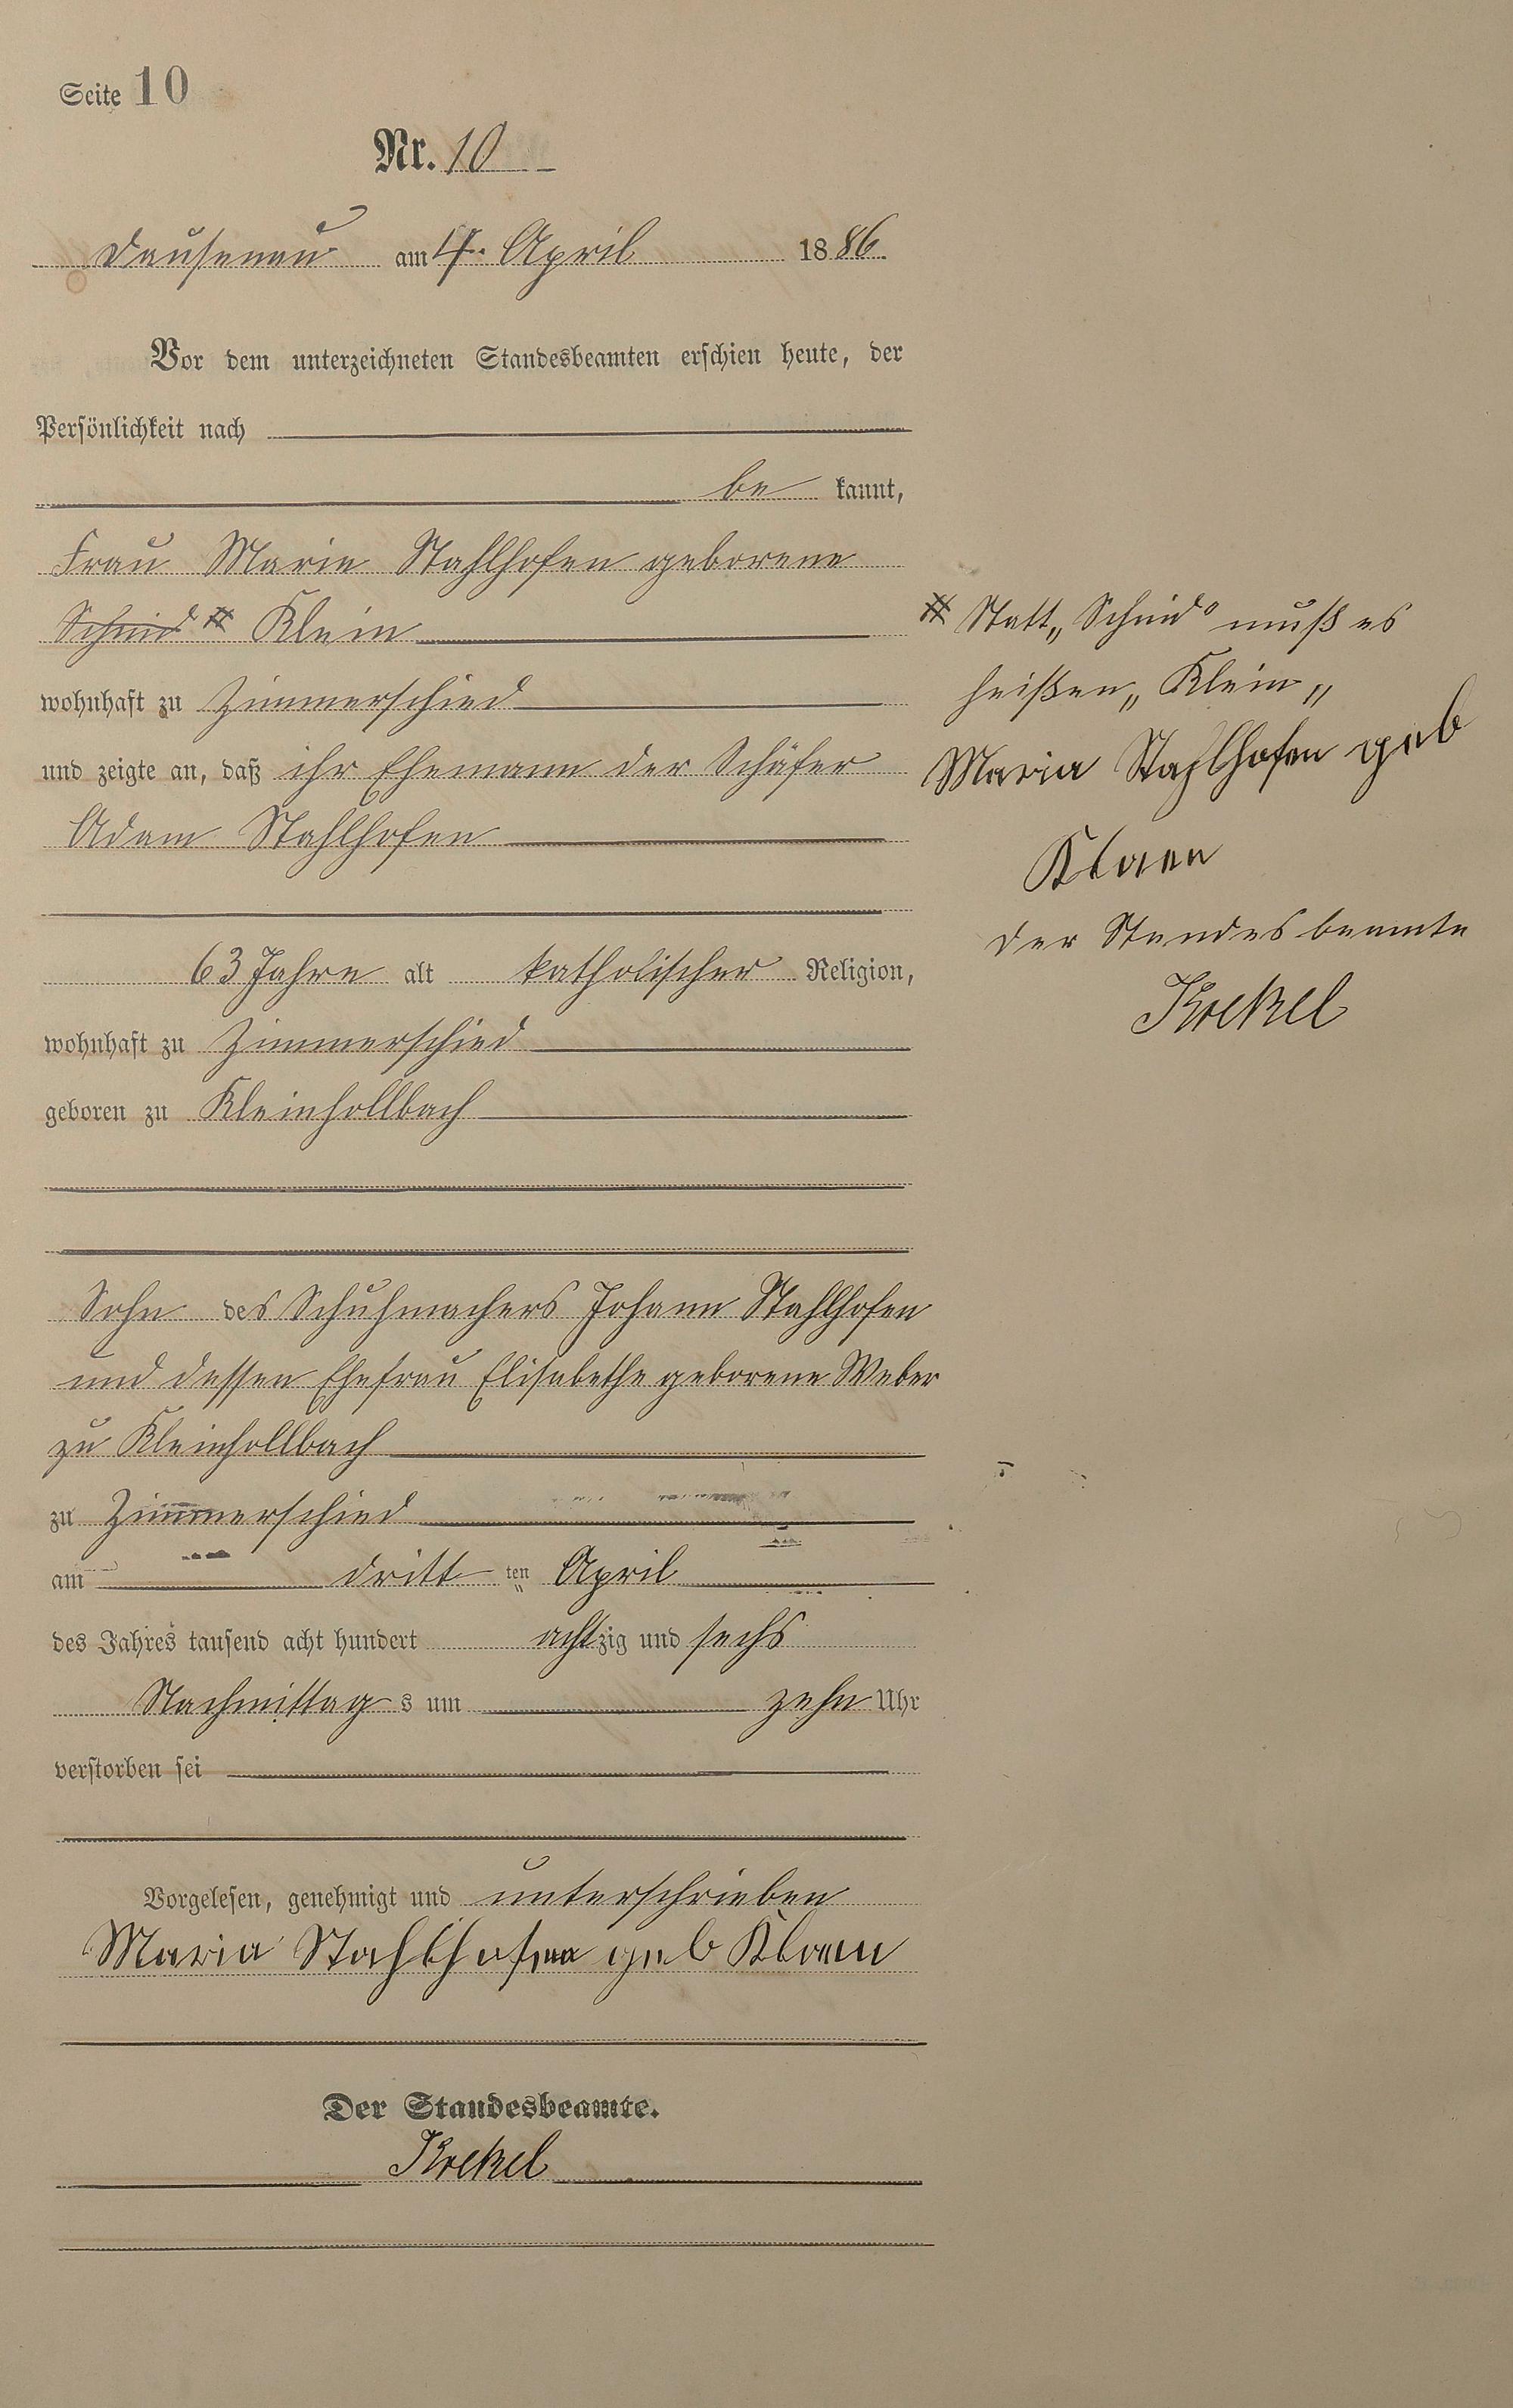 Seite 10
Nr. 10
Dausenau am 4. April 1886.
Vor dem unterzeichneten Standesbeamten erschien heute, der
Persönlichkeit nach
be kannt,
Frau Marie Stahlhofen geborene
Schmid # Klein
wohnhaft zu Zimmerschied
und zeigte an, daß ihr Ehemann der Schäfer
Adam Stahlhofen
63 Jahre alt katholischer Religion,
wohnhaft zu Zimmerschied
geboren zu Kleinhollbach
Sohn des Schuhmachers Johann Stahlhofen
und dessen Ehefrau Elisabethe geborene Weber
zu Kleinhollbach
zu Zimmerschied
am dritt ten April
des Jahres tausend acht hundert achtzig und sechs
Nachmittag s um zehn Uhr
verstorben sei
Vorgelesen, genehmigt und unterschrieben
Maria Stahlhofen geb Klein
Der Standesbeamte.
Krekel
# Statt „Schmid" muß es
heißen „Klein"
Maria Stahlhofen geb
Klein
Der Standesbeamte
Krekel